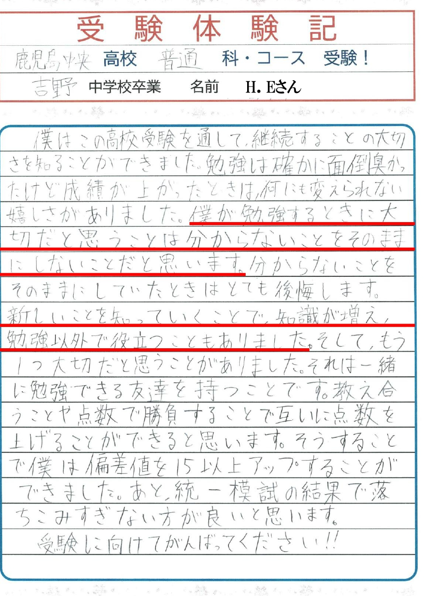 受験体験記
鹿児島中央 高校 普通 科・コース 受験！
吉野 中学校卒業 名前 H.Eさん
僕はこの高校受験を通して、継続することの大切
さを知ることができました。勉強は確かに面倒臭かっ
たけど成績が上がったときは、何にも変えられない
嬉しさがありました。僕が勉強するときに大
切だと思うことは分からないことをそのまま
にしないことだと思います。分からないことを
そのままにしていたときはとても後悔します。
新しいことを知っていくことで、知識が増え、
勉強以外で役立つこともありました。そして、もう
1つ大切だと思うことがありました。それは一緒
に勉強できる友達を持つことです。教え合
うことや点数で勝負することで互いに点数を
上げることができると思います。そうすること
で僕は偏差値を15以上アップすることが
できました。あと、統一模試の結果で落
ちこみすぎない方が良いと思います。
受験に向けてがんばってください!!